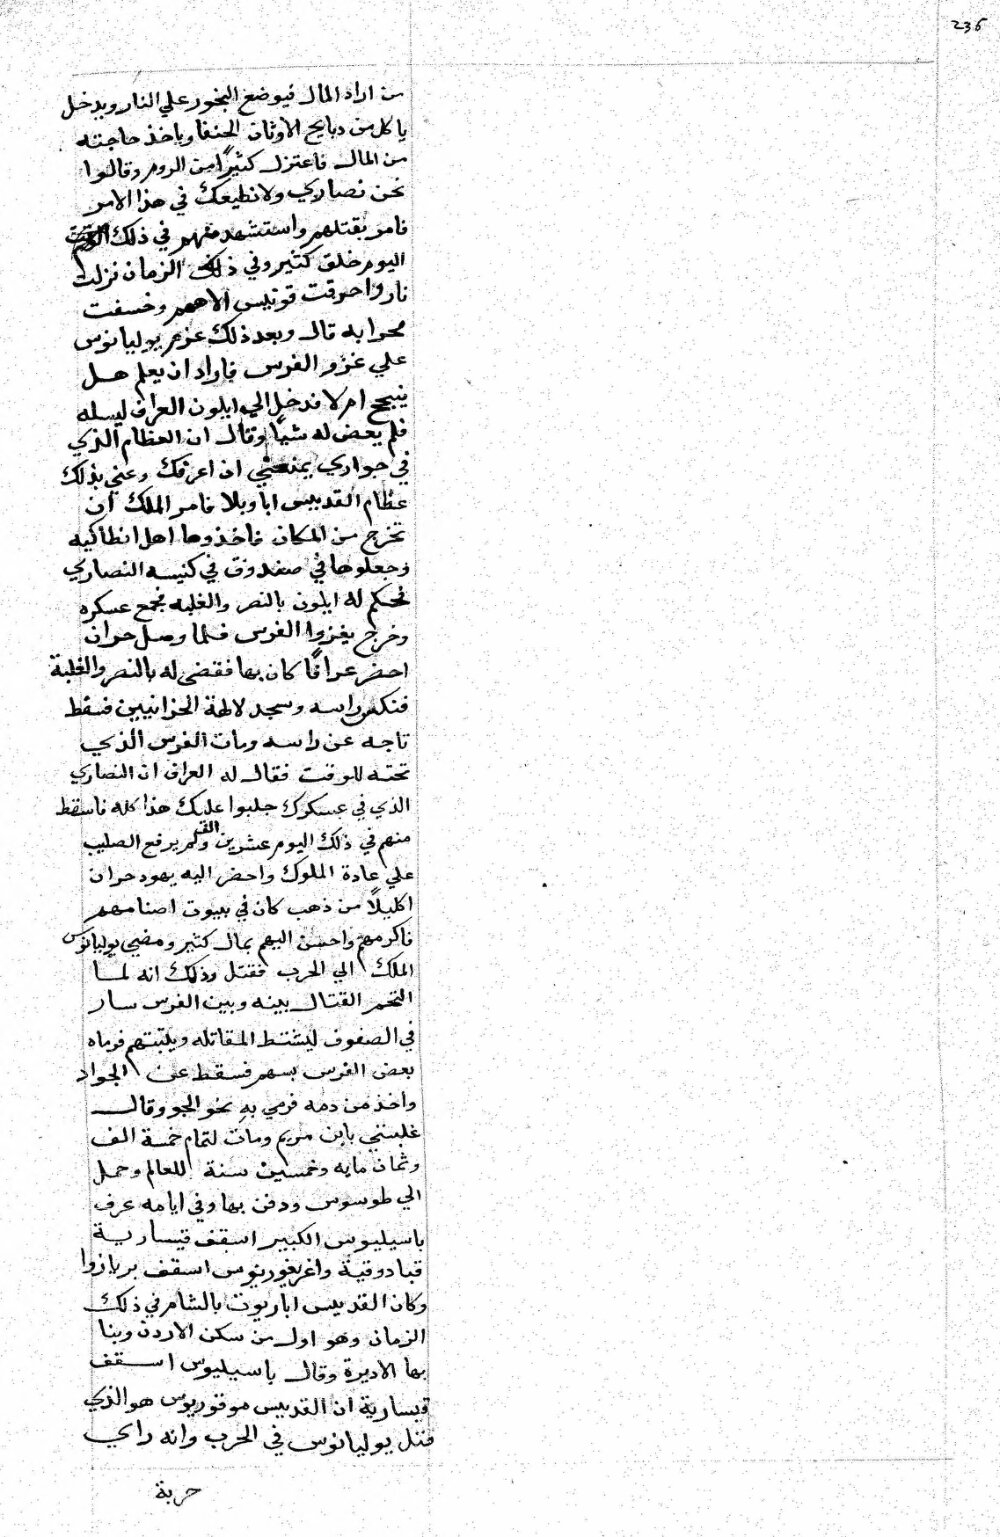 236
من اراد المال فيوضع البخور علي النار ويدخل
ياكل من دبايح الاوثان الحنفا وياخذ حاجته
من المال فاعتزل كثيرًا من الروم وقالوا
نحن نصاري ولا نطيعك في هذا الامر
فامر بقتلهم واستشهد منهم في ذلك
اليوم خلق كثير وفي ذلك الزمان نزلت
نار واحرقت قونيس الاهم وخسفت
محرابه قال وبعد ذلك عزم يوليانوس
علي غزو الفرس فاراد ان يعلم هل
ينجح ام لا فدخل الي ايلون العراف ليسله
فلم يعض له شيًا وقال ان العظام الذي
في جواري يمنعني ان اعرفك وعني بذلك
عظام القديس اباوبلا فامر الملك ان
تخرج من المكان فاخذوها اهل انطاكيه
وجعلوها في صندوق في كنيسه النصاري
فحكم له ايلون بالنصر والغلبه فجمع عسكره
وخرج يغزوا الفرس فلما وصل حران
احضر عرافًا كان بها فقضى له بالنصر والغلبة
فنكس راسه وسجد لالهة الحرانيين فسقط
تاجه عن راسه ومات الفرس الذي
تحته للوقت فقال له العراف ان النصاري
الذي في عسكرك جلبوا عليك هذا كله فاسقط
منهم في ذلك اليوم عشرين الف ولم يرفع الصليب
علي عادة الملوك واحضر اليه يهود حران
اكليلًا من ذهب كان في بيوت اصنامهم
فاكرمهم واحسن اليهم بمال كثير ومضي يوليانوس
الملك الي الحرب فقتل وذلك انه لما
التحم القتال بينه وبين الفرس سار
في الصفوف لينشط المقاتله ويثبتهم فرماه
بعض الفرس بسهم فسقط عن الجواد
واخذ من دمه فرمي به نحو الجو وقال
غلبتني يابن مريم ومات لتمام خمسة الف
وثمان مايه وخمسين سنة للعالم وحمل
الي طرسوس ودفن بها وفي ايامه عرف
باسيليوس الكبير اسقف قيسارية
قبادوقية واغريغوريوس اسقف بريازوا
وكان القديس اباريوت بالشام في ذلك
الزمان وهو اول من سكن الاردن وبنا
بها الاديرة وقال باسيليوس اسقف
قيسارية ان القديس مرقوريوس هو الذي
قتل يوليانوس في الحرب وانه راي
حربة